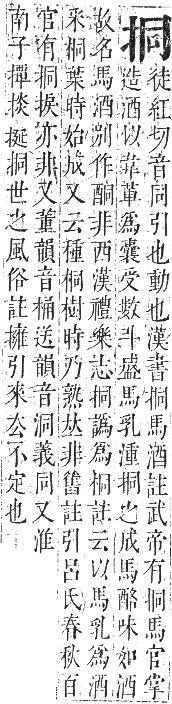 挏
徒紅切音同引也動也漢書挏馬酒註武帝有挏馬官掌
造酒以韋革爲囊受數斗盛馬乳湩挏之成馬酪味如酒
故名馬酒別作酮非西漢禮樂志挏譌爲桐註云以馬乳爲酒
采桐葉時始成又云種桐樹時乃熟𠀤非舊註引呂氏春秋百
官有挏挨亦非又董韻音桶送韻音洞義同又淮
南子撣掞挻挏世之風俗註擁引來厺不定也